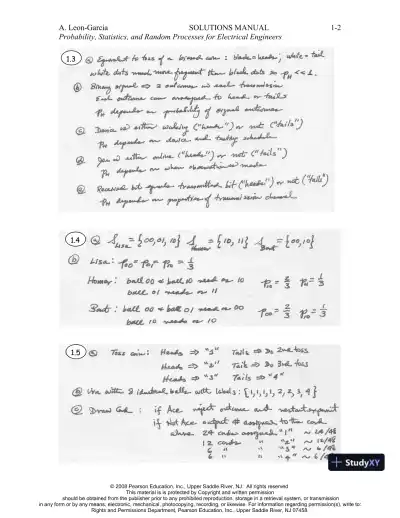 A. Leon-Garcia SOLUTIONS MANUAL 1-2
Probability, Statistics, and Random Processes for Electrical Engineers
1.3 ⓐ Equivalent to toss of a biased coin : black = heads; white = tail
white dots much more frequent than black dots so p_H << 1.
ⓑ Binary signal ⇒ 2 outcomes in each transmission
Each outcome can correspond to heads or tails
p_H depends on probability of signal outcomes
ⓒ Device is either working ("heads") or not ("tails")
p_H depends on device and testing schedule
ⓓ Jen is either online ("heads") or not ("tails")
p_H depends on when observation is made
ⓔ Received bit equals transmitted bit ("heads") or not ("tails")
p_H depends on properties of transmission channel
1.4 ⓐ S_Lisa = {00, 01, 10} S_Homer = {10, 11} S_Bart = {00, 10}
ⓑ Lisa : p00 = p01 = p10 = 1/3
Homer : ball 00 & ball 10 read as 10 p10 = 2/3 p11 = 1/3
ball 01 reads as 11
Bart : ball 00 & ball 01 read as 00 p00 = 2/3 p10 = 1/3
ball 10 reads as 10
1.5 ⓐ Toss coin: Heads ⇒ "1" Tails ⇒ Do 2nd toss
Heads ⇒ "2" Tails ⇒ Do 3rd toss
Heads ⇒ "3" Tails ⇒ "4"
ⓑ Urn with 8 identical balls with labels: {1, 1, 1, 1, 2, 2, 3, 4}
ⓒ Draw Card : if Ace reject outcome and restart experiment
if Not Ace output # assigned to the card
where 24 cards assigned "1" ~ 24/48
12 cards " "2" ~ 12/48
6 " " "3" ~ 6/48
6 " " "4" ~ 6/
StudyXY
© 2008 Pearson Education, Inc., Upper Saddle River, NJ. All rights reserved
This material is protected by Copyright and written permission
should be obtained from the publisher prior to any prohibited reproduction, storage in a retrieval system, or transmission
in any form or by any means, electronic, mechanical, photocopying, recording, or likewise. For information regarding permission(s), write to:
Rights and Permissions Department, Pearson Education, Inc., Upper Saddle River, NJ 07458.